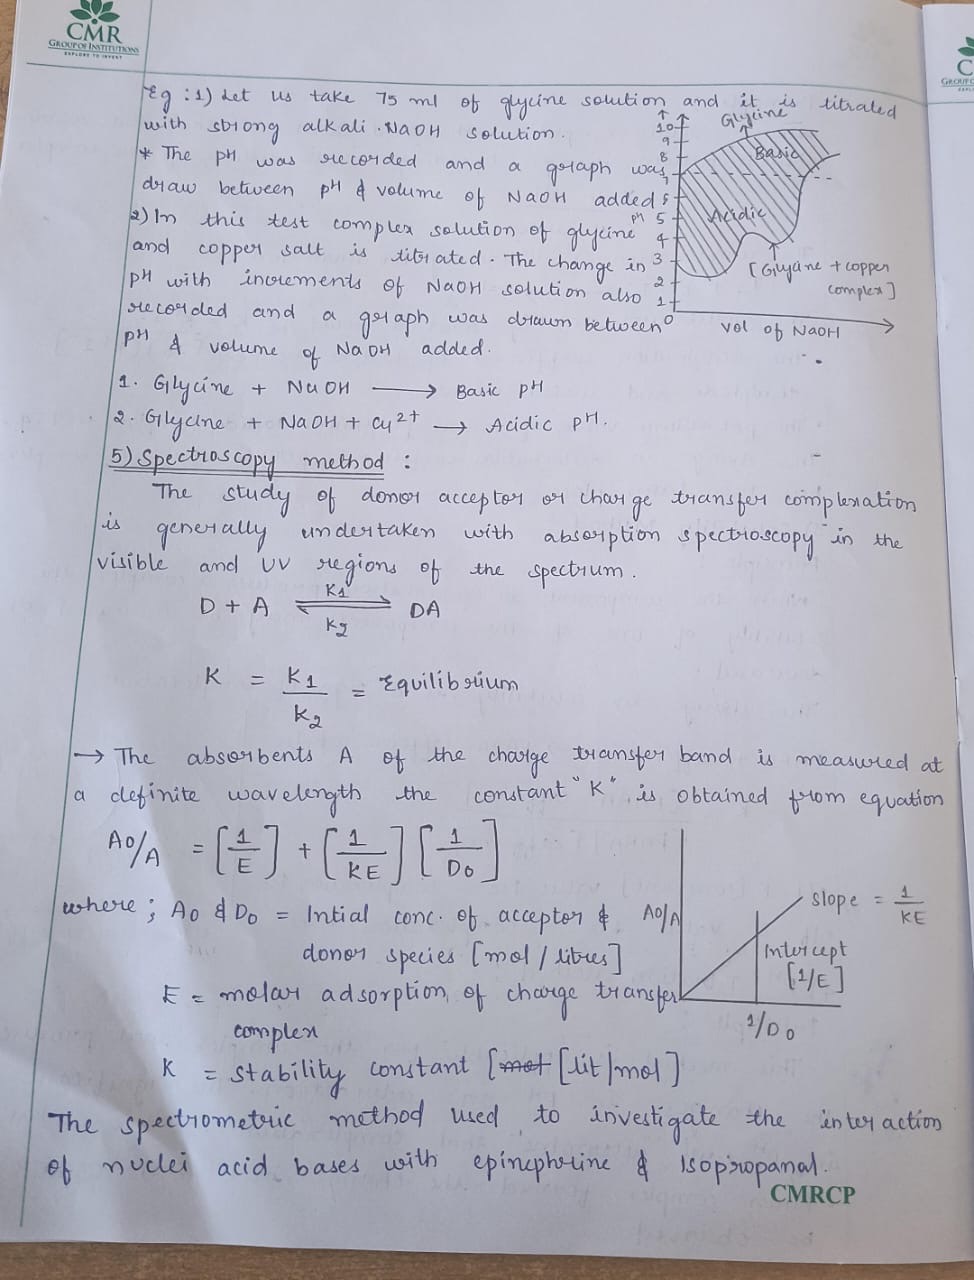 CMR
GROUP OF INSTITUTIONS
EXPLORE TO INVENT
Eg : 1) Let us take 75 ml of glycine solution and it is titrated
with strong alkali . NaOH solution.
* The pH was recorded and a graph was
draw between pH & volume of NaOH added
2) In this test complex solution of glycine
and copper salt is titrated. The change in
pH with increments of NaOH solution also
recorded and a graph was drawn between
pH & volume of NaOH added.
10
9
8
7
6
5
4
3
2
1
0
pH
Glycine
Basic
Acidic
[Glyane + copper
complex]
Vol of NaOH
1. Glycine + NaOH → Basic pH
2. Glycine + NaOH + Cu2+ → Acidic pH.
5) Spectroscopy method :
The study of donor acceptor or charge transfer complexation
is generally undertaken with absorption spectroscopy in the
visible and UV regions of the spectrum.
D + A ⇌ DA
K1
K2
K = K1/K2 = Equilibrium
→ The absorbents A of the charge transfer band is measured at
a definite wavelength the constant "K" is obtained from equation
A0/A = [1/E] + [1/KE] [1/D0]
where ; A0 & D0 = Intial conc. of acceptor &
donor species [mol / litres]
E = molar adsorption of charge transfer
complex
K = stability constant [mot [lit/mol]
A0/A
slope = 1/KE
Intercept
[1/E]
1/D0
The spectrometric method used to investigate the interaction
of nuclei acid bases with epinephrine & Isopropanal.
CMRCP
C
GROUP O